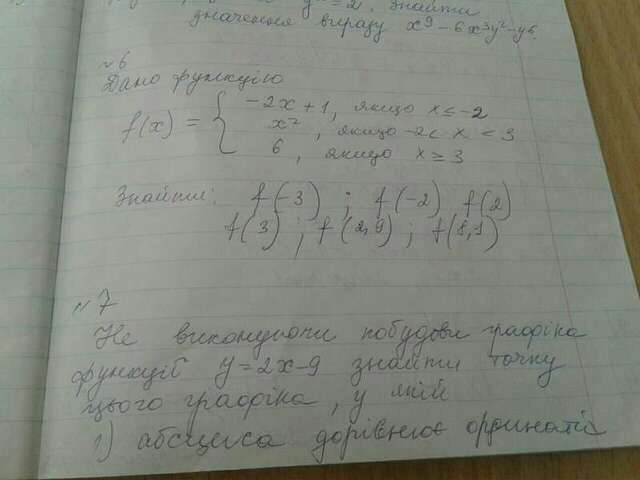 y = 2. Знайти
значення виразу x⁹ - 6x³y² - y6.
№6
Дано функцію
f(x) = { -2x + 1, якщо x ≤ -2
x², якщо -2 < x < 3
6, якщо x ≥ 3
Знайти: f(-3) ; f(-2) f(2)
f(3) ; f(2,9) ; f(8,1)
№7
Не виконуючи побудови графіка
функції y = 2x - 9 знайти точку
цього графіка, у якій
1) абсциса дорівнює ординаті